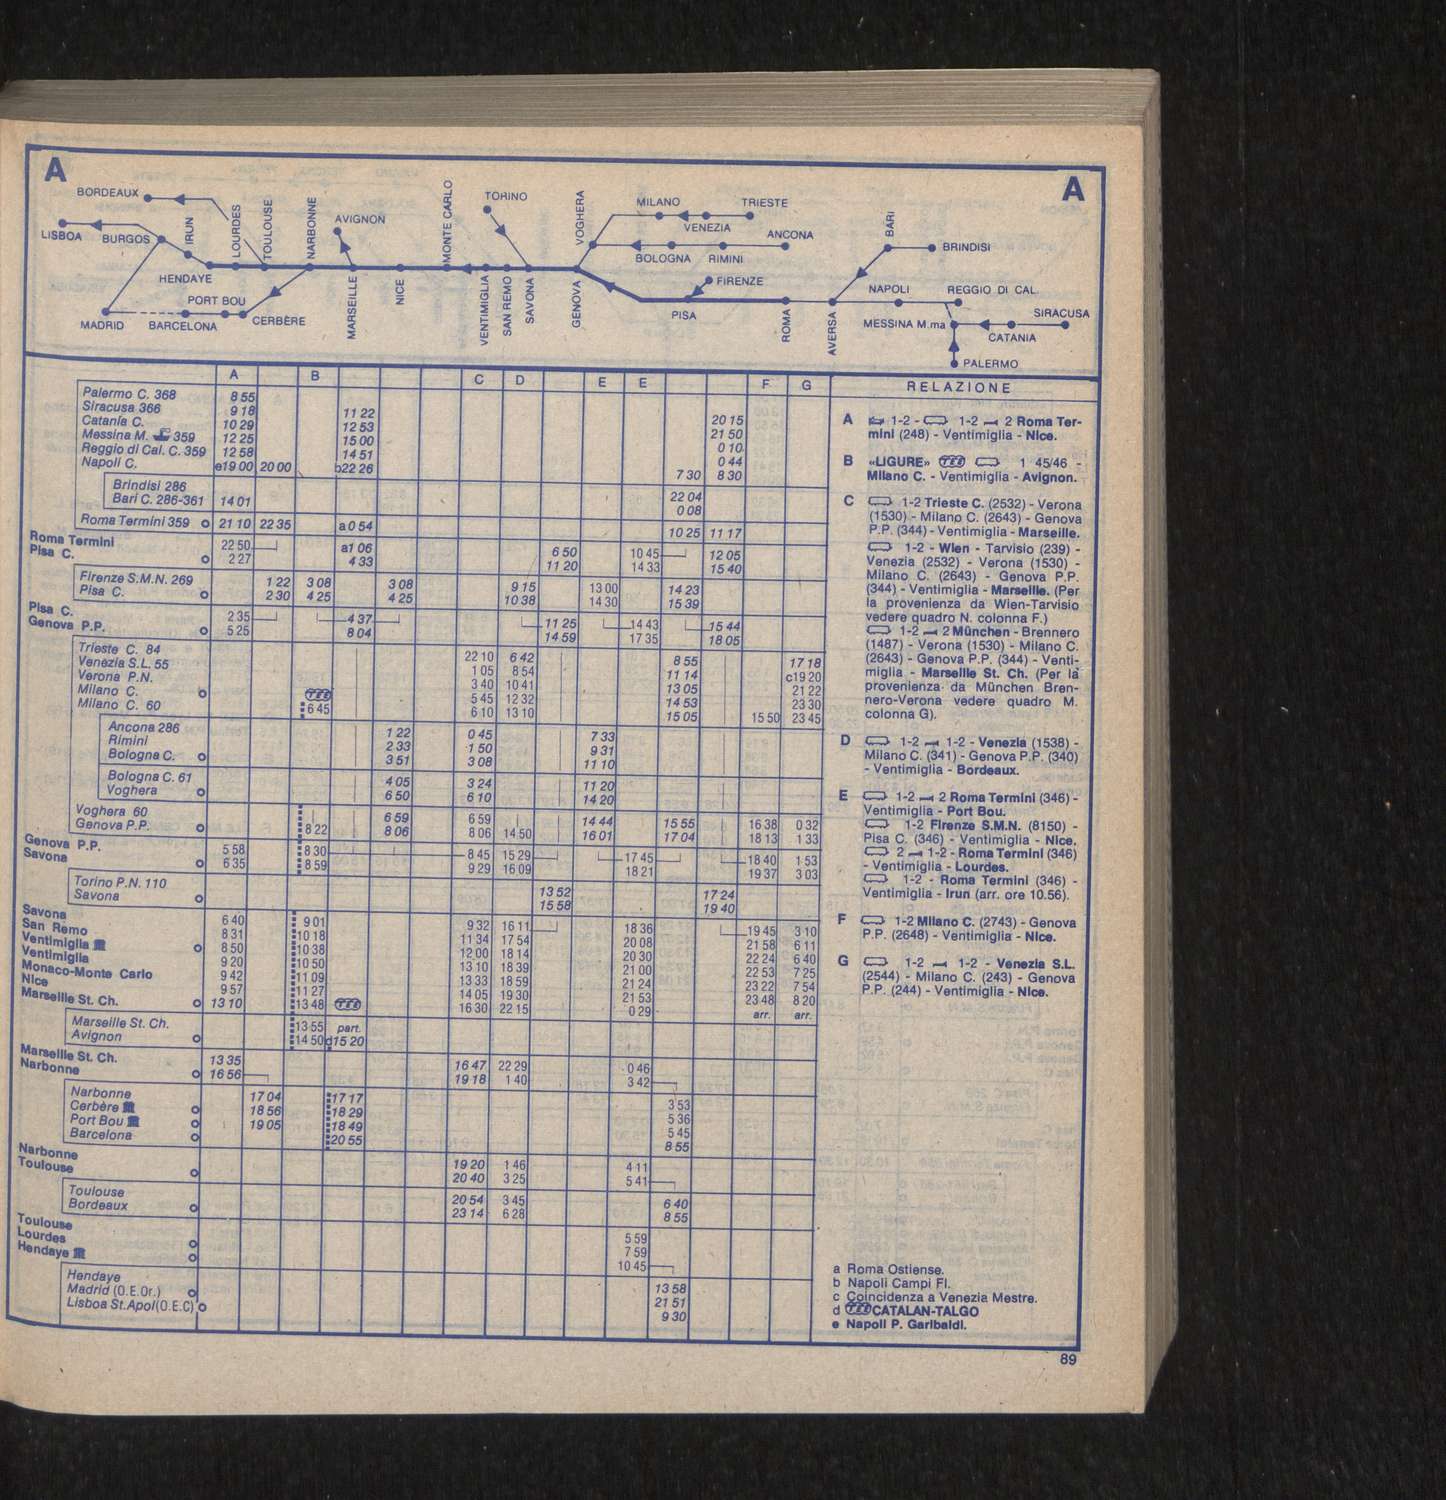 A
A
BORDEAUX
LISBOA
BURGOS
IRUN
LOURDES
TOULOUSE
NARBONNE
AVIGNON
MONTE CARLO
TORINO
VOGHERA
MILANO
TRIESTE
VENEZIA
ANCONA
BOLOGNA
RIMINI
BARI
BRINDISI
HENDAYE
PORT BOU
MADRID
BARCELONA
CERBÈRE
MARSEILLE
NICE
VENTIMIGLIA
SAN REMO
SAVONA
GENOVA
FIRENZE
PISA
ROMA
AVERSA
NAPOLI
REGGIO DI CAL.
MESSINA M.ma
SIRACUSA
CATANIA
PALERMO
A B C D E E F G
Palermo C. 368 8 55
Siracusa 366 9 18 11 22
Catania C. 10 29 12 53 20 15
Messina M. 359 12 25 15 00 21 50
Reggio di Cal. C. 359 12 58 14 51 0 10
0 44
Napoli C. e19 00 20 00 b22 26 7 30 8 30
Brindisi 286 22 04
Bari C. 286-361 14 01 0 08
Roma Termini 359 21 10 22 35 a 0 54 10 25 11 17
Roma Termini 22 50 a1 06 6 50 10 45 12 05
Pisa C. 2 27 4 33 11 20 14 33 15 40
Firenze S.M.N. 269 1 22 3 08 3 08 9 15 13 00 14 23
Pisa C. 2 30 4 25 4 25 10 38 14 30 15 39
Pisa C. 2 35 4 37 11 25 14 43 15 44
Genova P.P. 5 25 8 04 14 59 17 35 18 05
Trieste C. 84 22 10 6 42 8 55 17 18
Venezia S.L. 55 1 05 8 54 11 14 c19 20
Verona P.N. 3 40 10 41 13 05 21 22
Milano C. TEE 5 45 12 32 14 53 23 30
Milano C. 60 6 45 6 10 13 10 15 05 15 50 23 45
Ancona 286 1 22 0 45 7 33
Rimini 2 33 1 50 9 31
Bologna C. 3 51 3 08 11 10
Bologna C. 61 4 05 3 24 11 20
Voghera 6 50 6 10 14 20
Voghera 60 6 59 6 59 14 44 15 55 16 38 0 32
Genova P.P. 8 22 8 06 8 06 14 50 16 01 17 04 18 13 1 33
Genova P.P. 5 58 8 30 8 45 15 29 17 45 18 40 1 53
Savona 6 35 8 59 9 29 16 09 18 21 19 37 3 03
Torino P.N. 110 13 52 17 24
Savona 15 58 19 40
Savona 6 40 9 01 9 32 16 11 18 36 19 45 3 10
San Remo 8 31 10 18 11 34 17 54 20 08 21 58 6 11
Ventimiglia 8 50 10 38 12 00 18 14 20 30 22 24 6 40
Ventimiglia 9 20 10 50 13 10 18 39 21 00 22 53 7 25
Monaco-Monte Carlo 9 42 11 09 13 33 18 59 21 24 23 22 7 54
Nice 9 57 11 27 14 05 19 30 21 53 23 48 8 20
Marseille St. Ch. 13 10 13 48 TEE 16 30 22 15 0 29 arr. arr.
Marseille St. Ch. 13 55 part.
Avignon 14 50 d15 20
Marseille St. Ch. 13 35 16 47 22 29 0 46
Narbonne 16 56 19 18 1 40 3 42
Narbonne 17 04 17 17 3 53
Cerbère 18 56 18 29 5 36
Port Bou 19 05 18 49 5 45
Barcelona 20 55 8 55
Narbonne 19 20 1 46 4 11
Toulouse 20 40 3 25 5 41
Toulouse 20 54 3 45 6 40
Bordeaux 23 14 6 28 8 55
Toulouse 5 59
Lourdes 7 59
Hendaye 10 45
Hendaye 13 58
Madrid (O.E.Or.) 21 51
Lisboa St.Apol(O.E.C) 9 30
RELAZIONE
A 1-2 - 1-2 2 Roma Ter-
mini (248) - Ventimiglia - Nice.
B «LIGURE» TEE 1 45/46 -
Milano C. - Ventimiglia - Avignon.
C 1-2 Trieste C. (2532) - Verona
(1530) - Milano C. (2643) - Genova
P.P. (344) - Ventimiglia - Marseille.
1-2 - Wien - Tarvisio (239) -
Venezia (2532) - Verona (1530) -
Milano C. (2643) - Genova P.P.
(344) - Ventimiglia - Marseille. (Per
la provenienza da Wien-Tarvisio
vedere quadro N. colonna F.)
1-2 2 München - Brennero
(1487) - Verona (1530) - Milano C.
(2643) - Genova P.P. (344) - Venti-
miglia - Marseille St. Ch. (Per la
provenienza da München Bren-
nero-Verona vedere quadro M.
colonna G).
D 1-2 1-2 - Venezia (1538) -
Milano C. (341) - Genova P.P. (340)
- Ventimiglia - Bordeaux.
E 1-2 2 Roma Termini (346) -
Ventimiglia - Port Bou.
1-2 Firenze S.M.N. (8150) -
Pisa C. (346) - Ventimiglia - Nice.
2 1-2 - Roma Termini (346)
- Ventimiglia - Lourdes.
1-2 - Roma Termini (346) -
Ventimiglia - Irun (arr. ore 10.56).
F 1-2 Milano C. (2743) - Genova
P.P. (2648) - Ventimiglia - Nice.
G 1-2 1-2 - Venezia S.L.
(2544) - Milano C. (243) - Genova
P.P. (244) - Ventimiglia - Nice.
a Roma Ostiense.
b Napoli Campi Fl.
c Coincidenza a Venezia Mestre.
d TEE CATALAN-TALGO
e Napoli P. Garibaldi.
89